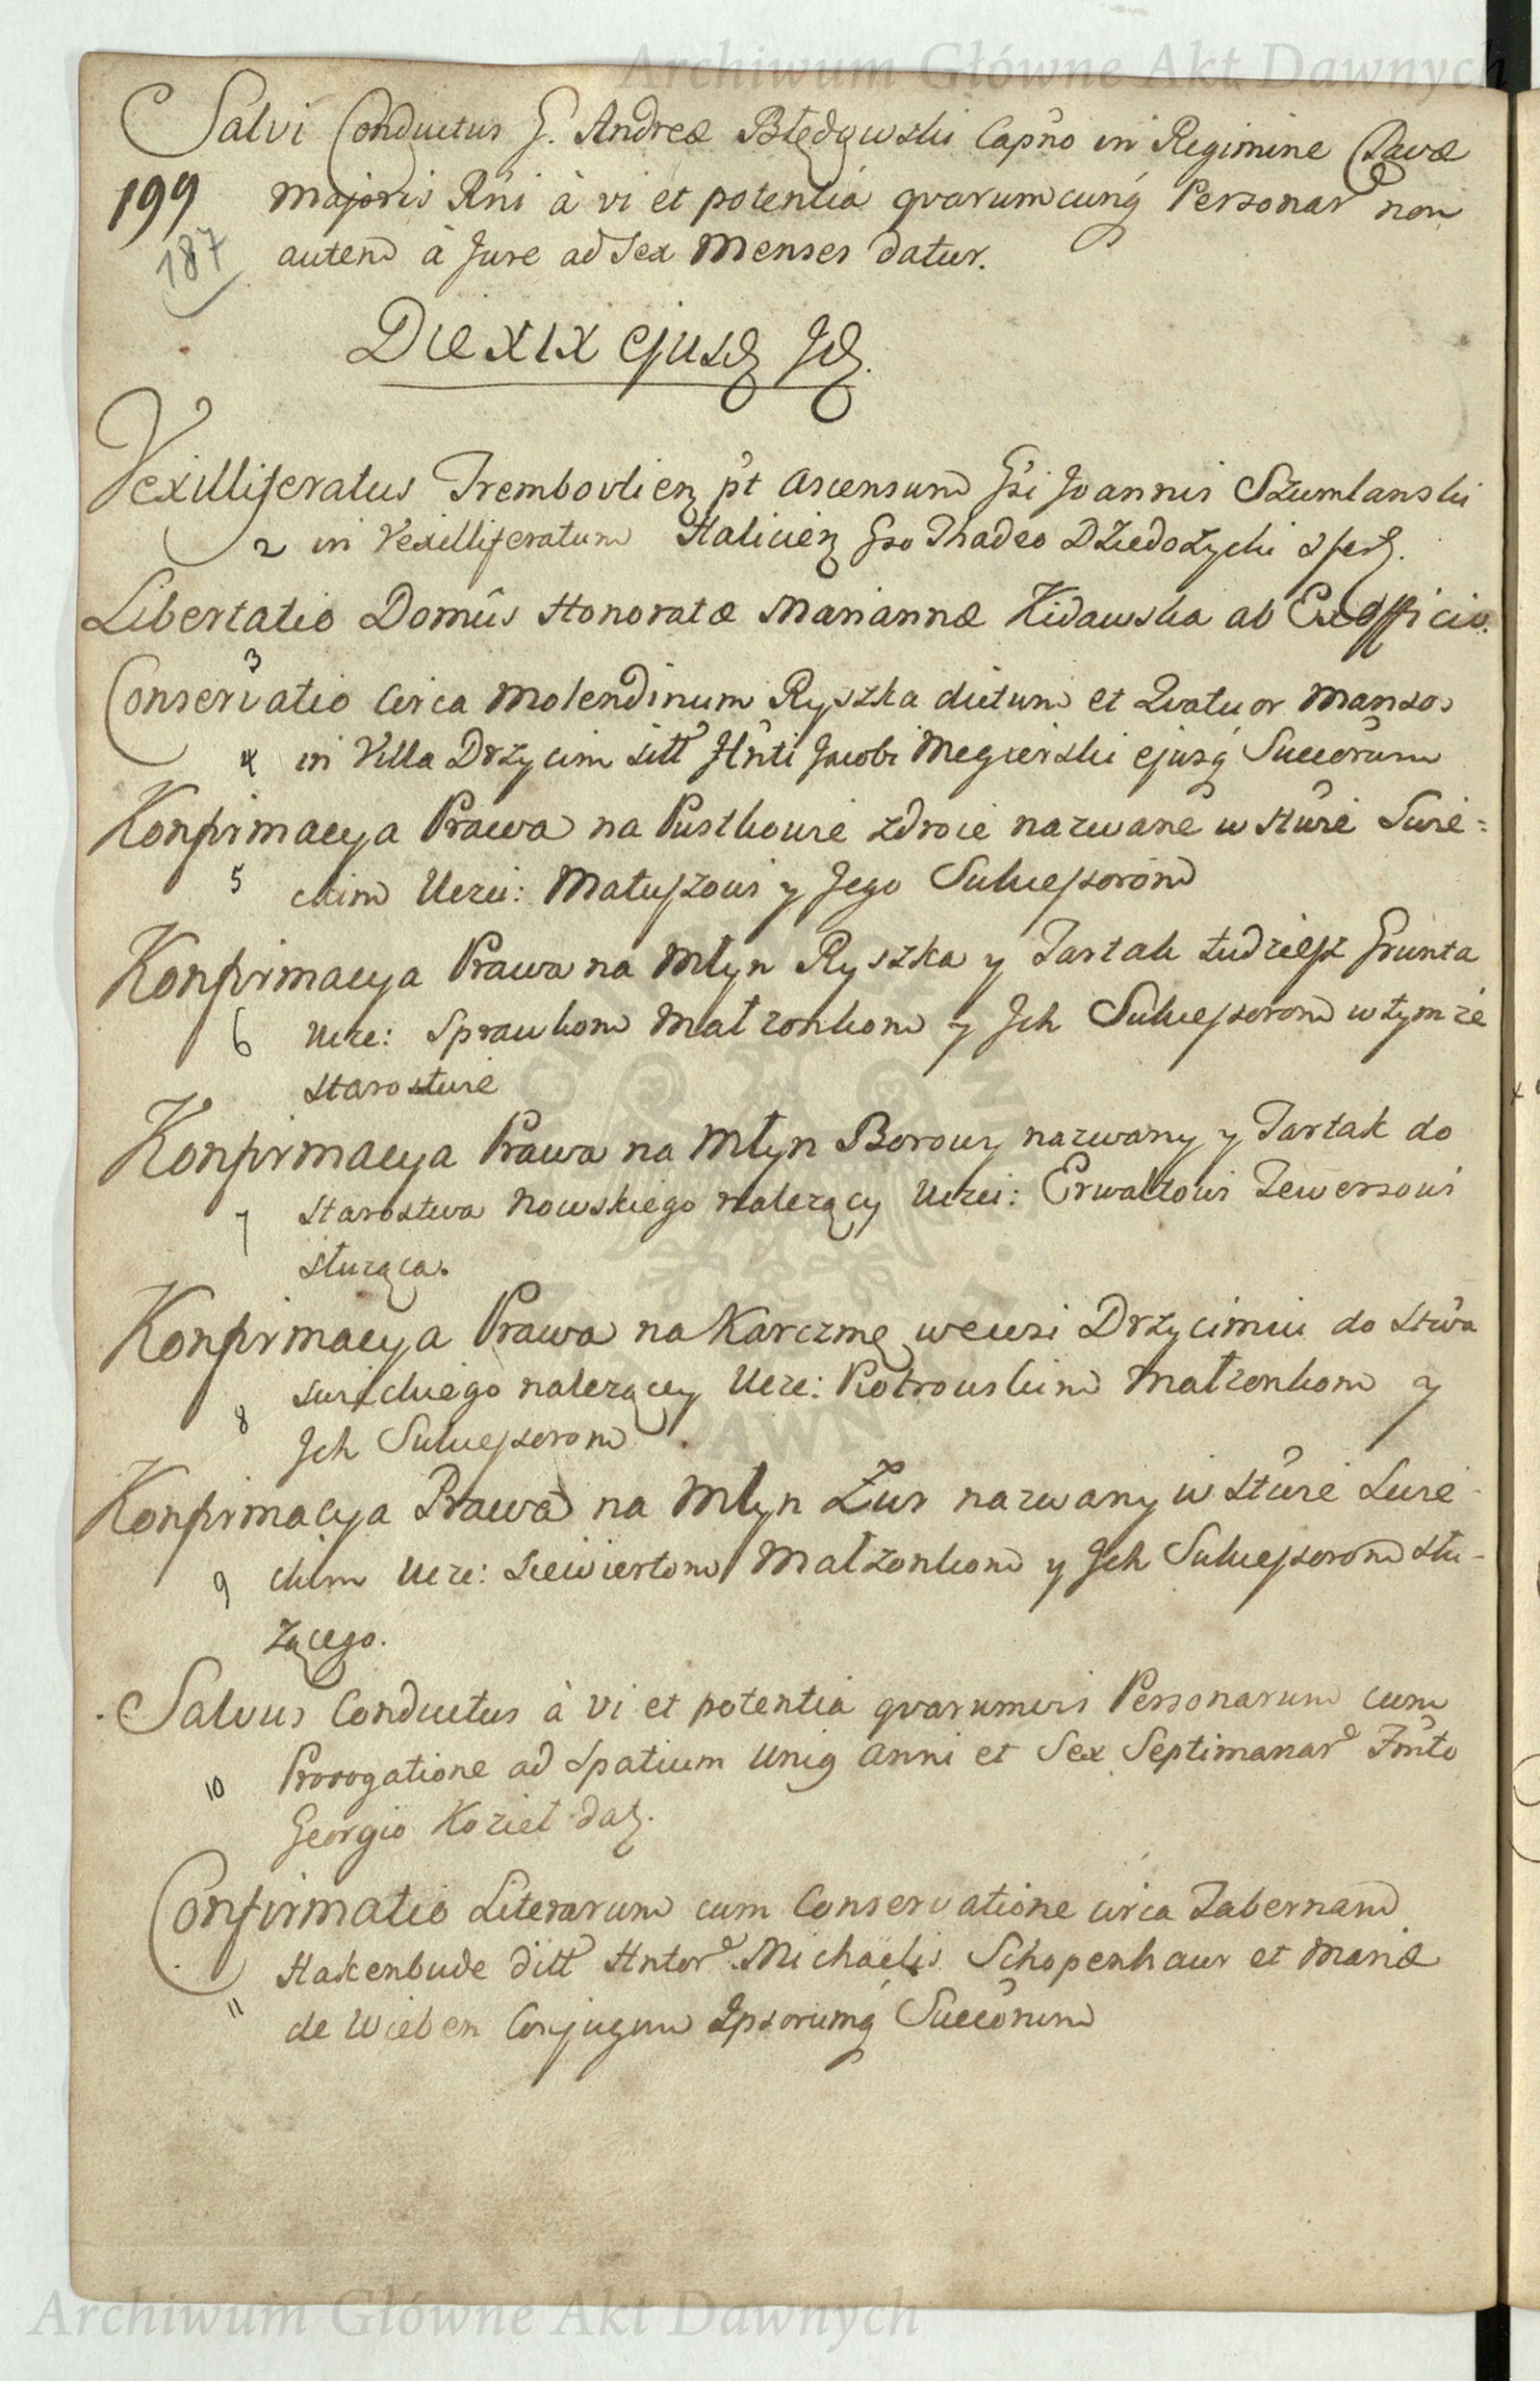 Archiwum Główne Akt Dawnych
Salvi Conductus G. Andreæ Błędowski Capño in Regimine
199 Majoris Rñi à vi et potentiâ qvarumcunq́ Personar non
187
autem à Jure ad Sex Menses datur.
Die XIX ejusd Id.
Vexilliferatus Trembovlien pt ascensum Gsi Joannis Szumlanski
2 in Vexilliferatum Halicien Gso Thadeo Dziedożycki
Libertatio Domûs Honoratæ Mariannæ Kidawska ab Exofficio.
3
Conservatio circa Molendinum Ryszka dictum et Qvatuor Mansos
4 in Villa Drzycim sitt Hñti Jacobi Megierski ejusq́ Succorum
Konfirmacya Prawa na Pustkowie zdroie nazwane w Stwie Swie=
5 ckim Ucżci: Matuszowi y Jego Sukcessorom
Konfirmacya Prawa na Młyn Ryszka y Tartak tudziesz Grunta
6 Ucze: Sprawkom Małżonkom y Ich Sukcessorom w tymże
Starostwie
Konfirmacya Prawa na Młyn Borowy nazwany y Tartak do
7 Starostwa Nowskiego należący Uczci: Erwaltowi Zewersowi
służąca.
Konfirmacya Prawa na Karczmę we wsi Drzycimiu do Stwa
Swieckiego należącey Ucze: Piotrowskim Małżonkom y
8 Ich Sukcessorom
Konfirmacya Prawa na Młyn Żur nazwany w Stwie Swie-
9 ckim Ucze: Siewiertom Małżonkom y Ich Sukcessorom słu-
żącego.
Salvus Conductus à vi et potentia qvarumvis Personarum cum
10 Prorogatione ad Spatium Uniq anni et Sex Septimanar
Georgio Kozieł dat.
Confirmatio Literarum cum Conservatione circa Tabernam
Hakenbude ditt Hntor Michaëlis Schopenhaur et Mariæ
11 de Wieben Conjugum Ipsorumq́ Succorum
Archiwum Główne Akt Dawnych